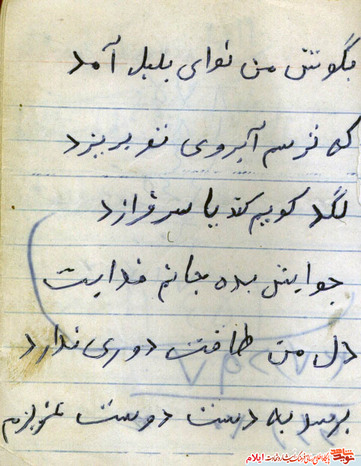 بگوش من نوای بلبل آمد
که ترسم آبروی تو بریزد
لگد کوبم کند یا سرفرازد
جوابش بده جانم فدایت
دل من طاقت دوری ندارد
برسد به دست دوست عزیزم
ایلام